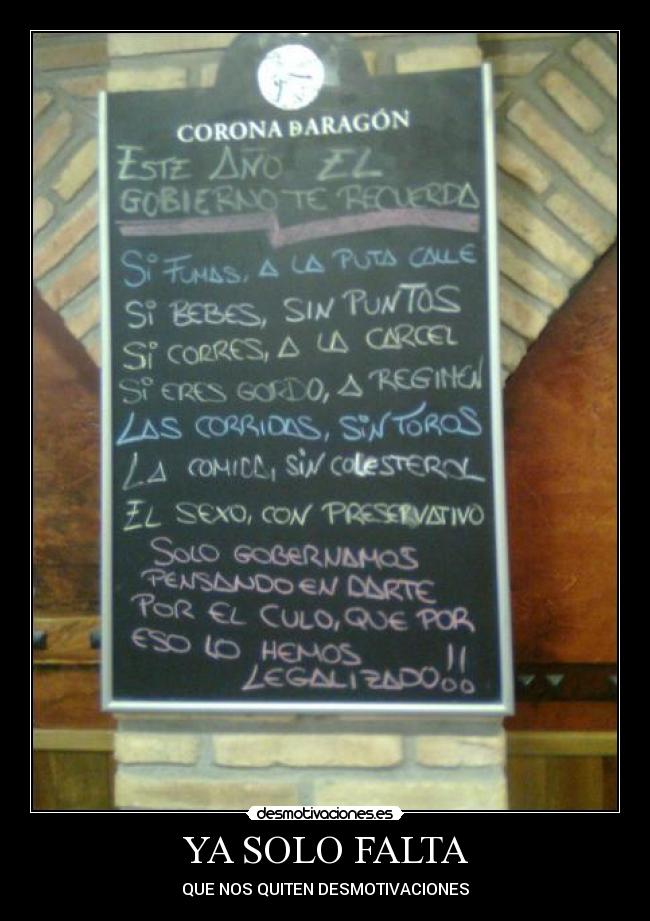 CORONA DARAGÓN
ESTE AÑO EL
GOBIERNO TE RECUERDA
Si FUMAS, A LA PUTA CALLE
Si BEBES, SIN PUNTOS
Si CORRES, A LA CARCEL
Si ERES GORDO, A REGIMEN
LAS CORRIDAS, SiN TOROS
LA COMIDA, SiN COLESTEROL
EL SEXO, CON PRESERVATIVO
SOLO GOBERNAMOS
PENSANDO EN DARTE
POR EL CULO, QUE POR
ESO LO HEMOS !!
LEGALIZADO
desmotivaciones.es
YA SOLO FALTA
QUE NOS QUITEN DESMOTIVACIONES